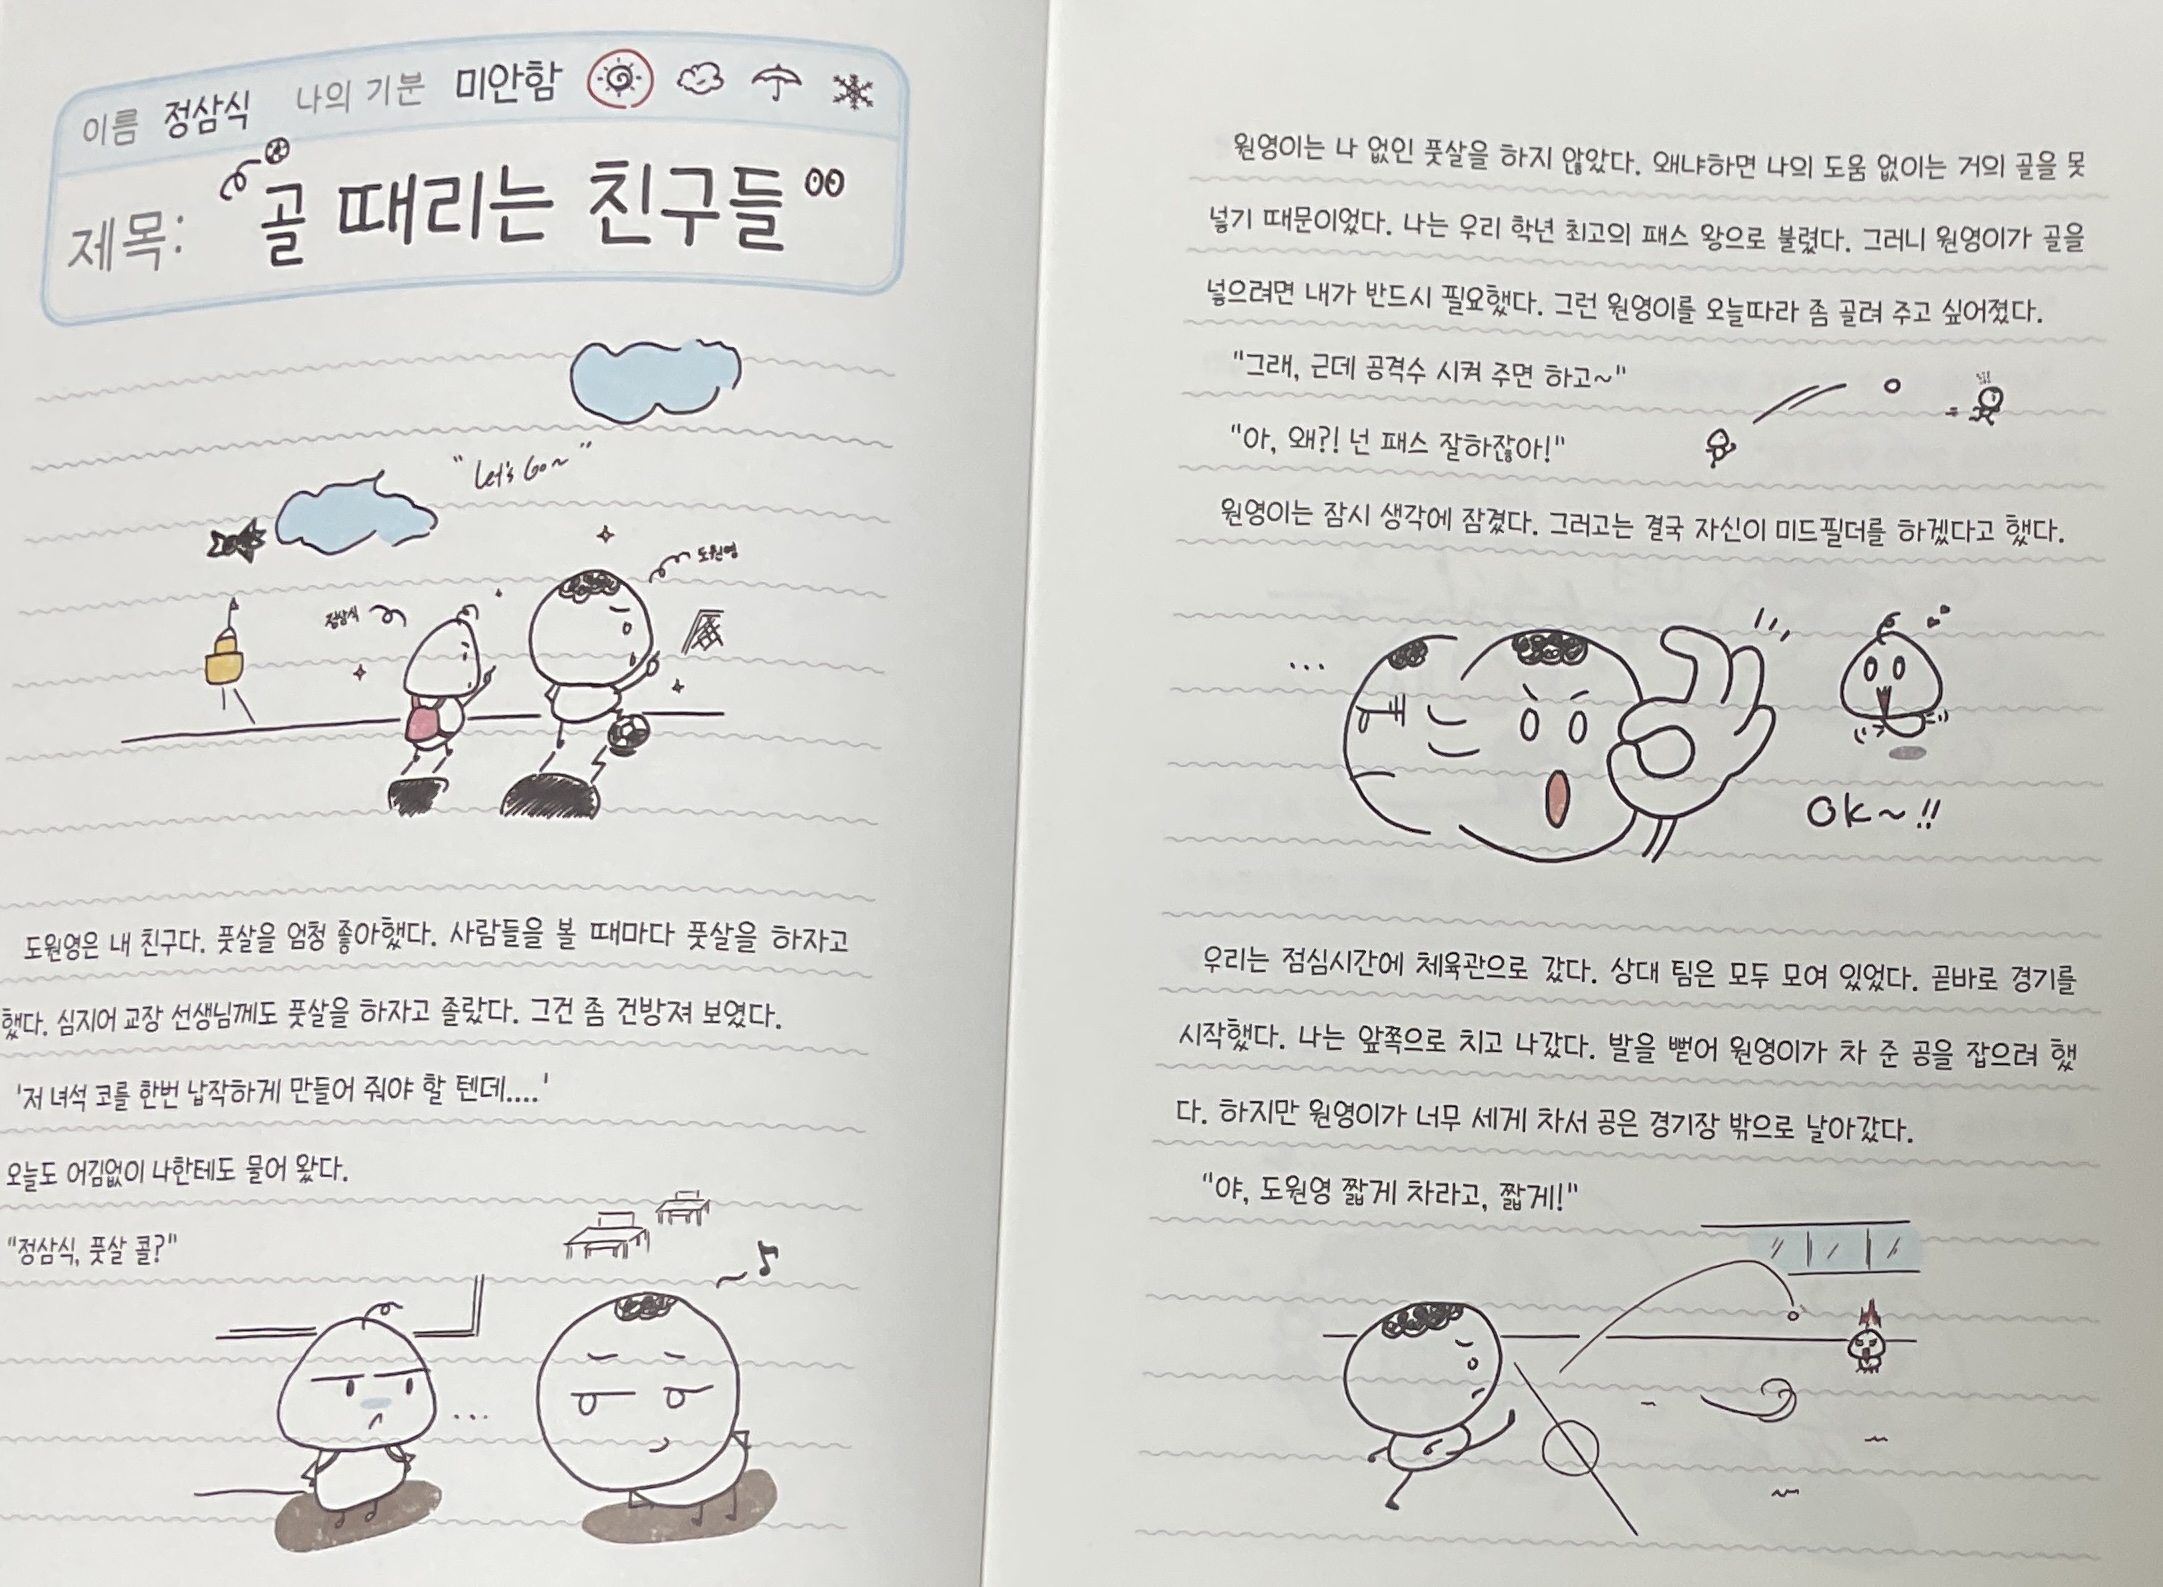 이름 정삼식 나의 기분 미안함
제목: 골 때리는 친구들
"Let's Go~"
도원영
정삼식
도원영은 내 친구다. 풋살을 엄청 좋아했다. 사람들을 볼 때마다 풋살을 하자고
했다. 심지어 교장 선생님께도 풋살을 하자고 졸랐다. 그건 좀 건방져 보였다.
'저 녀석 코를 한번 납작하게 만들어 줘야 할 텐데....'
오늘도 어김없이 나한테도 물어 왔다.
"정삼식, 풋살 콜?"
...
원영이는 나 없인 풋살을 하지 않았다. 왜냐하면 나의 도움 없이는 거의 골을 못
넣기 때문이었다. 나는 우리 학년 최고의 패스 왕으로 불렸다. 그러니 원영이가 골을
넣으려면 내가 반드시 필요했다. 그런 원영이를 오늘따라 좀 골려 주고 싶어졌다.
"그래, 근데 공격수 시켜 주면 하고~"
"아, 왜?! 넌 패스 잘하잖아!"
원영이는 잠시 생각에 잠겼다. 그러고는 결국 자신이 미드필더를 하겠다고 했다.
...
OK~!!
우리는 점심시간에 체육관으로 갔다. 상대 팀은 모두 모여 있었다. 곧바로 경기를
시작했다. 나는 앞쪽으로 치고 나갔다. 발을 뻗어 원영이가 차 준 공을 잡으려 했
다. 하지만 원영이가 너무 세게 차서 공은 경기장 밖으로 날아갔다.
"야, 도원영 짧게 차라고, 짧게!"